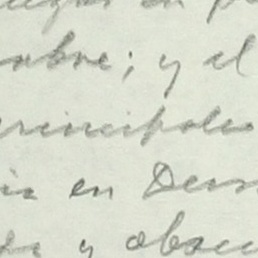 en p
mbre; y el
principales
ia en Dem
y obscu